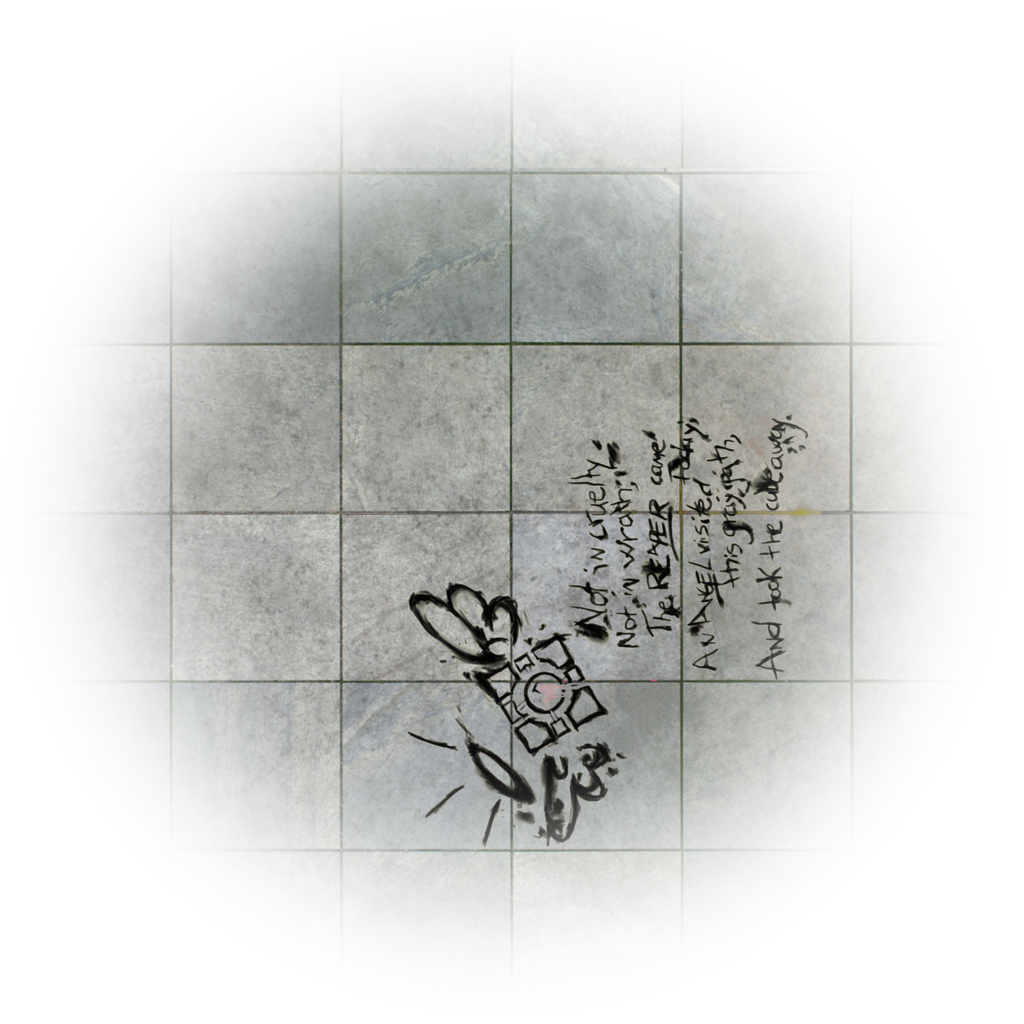 Not in cruelty.
Not in wrath,
The REAPER came
today;
AN ANGEL visited
this gray path,
And took the cube away.